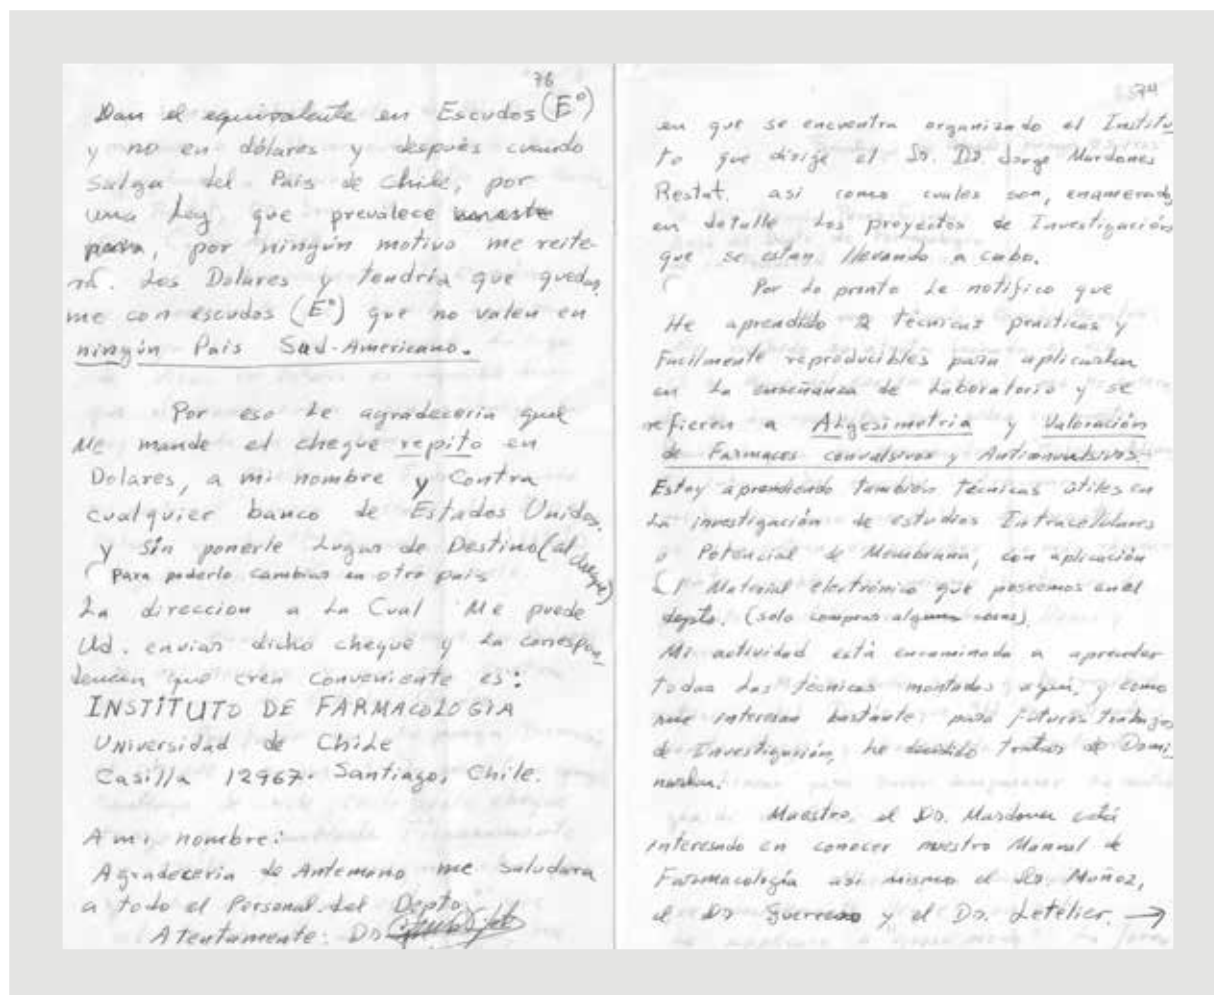 76
Dan el equivalente en Escudos (Eº)
y no en dólares y después cuando
Salga del País de Chile, por
una Ley que prevalece
, por ningún motivo me reite-
ra. Los Dolares y tendría que quedar
me con escudos (Eº) que no valen en
ningún País Sud-Americano.
Por eso Le agradecería qué
Me mande el cheque repito en
Dolares, a mi nombre y Contra
cualquier banco de Estados Unidos,
y Sin ponerle Lugar de Destino (al cheque)
Para poderlo cambiar en otro país
La direccion a La Cual Me puede
Ud. enviar dicho cheque y La correspon-
dencia que crea conveniente es:
INSTITUTO DE FARMACOLOGIA
Universidad de Chile
Casilla 12967. Santiago, Chile.
A mi nombre:
Agradecería de Antemano me Saludara
a todo el Personal del Depto
Atentamente: Dr
en que se encuentra organizado el Institu
to que dirige el Sr. Dr. Jorge Mardones
Restat. así como cuales son, enumerado
en detalle Los proyectos de Investigación
que se estan llevando a cabo.
Por Lo pronto Le notifico que
He aprendido 2 técnicas practicas y
Facilmente reproducibles para aplicarlas
en La enseñanza de Laboratorio y se
refieren a Algesimetria y Valoración
de Farmacos convulsivos y Anticonvulsivos.
Estoy aprendiendo también técnicas útiles en
La investigación de estudios Intracelulares
o Potencial de Membrana, con aplicación
Material electrónico que poseemos en el
depto. (solo comprar algunas cosas).
Mi actividad está encaminada a aprender
todas Las técnicas montadas aquí, y como
me interesan bastante para futuros trabajos
de Investigación, he decidido tratar de Domi
narlas.
Maestro, el Dr. Mardones está
interesado en conocer nuestro Manual de
Farmacología así mismo el Dr Muñoz,
el Dr Guerrero y el Dr. Letelier. →